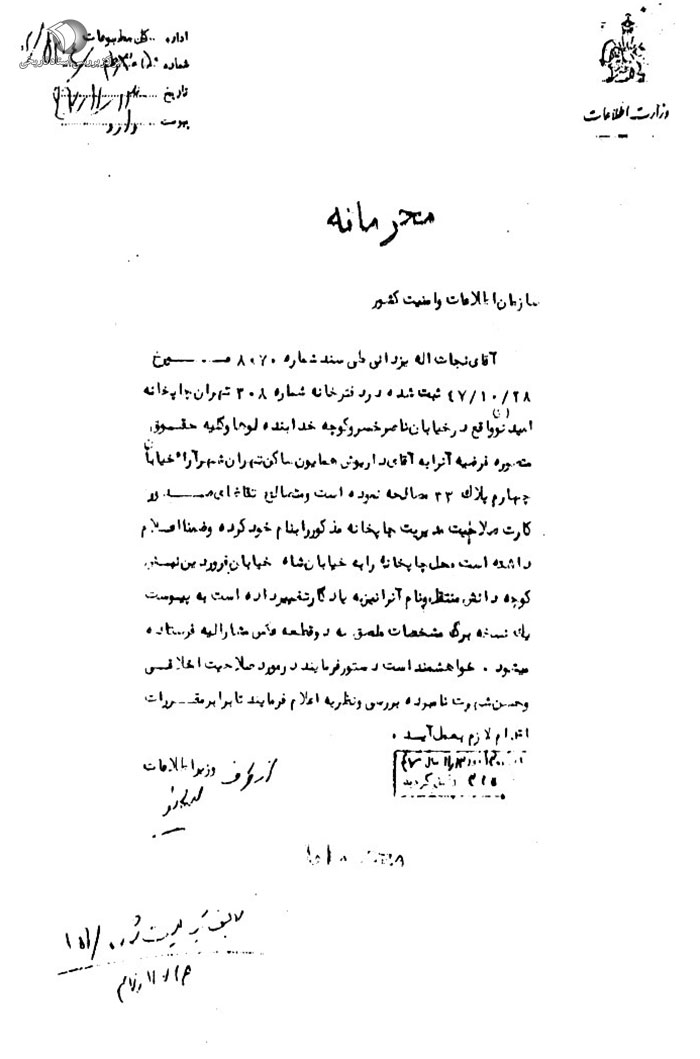 اداره کل مطبوعات
شماره
تاریخ
پیوست دارد
مرکز بررسی اسناد تاریخی
وزارت اطلاعات
محرمانه
سازمان اطلاعات و امنیت کشور
آقای نجات اله یزدانی طی سند شماره ۸۰۷۰ مورخ
۴۷/۱۰/۲۸ ثبت شده در دفترخانه شماره ۳۰۸ تهران چاپخانه
امید نو واقع در خیابان ناصرخسرو کوچه خدابنده لوها و کلیه حقوق
متصوره فرضیه آنرا به آقای داریوش همایون ساکن تهران شهرآرا خیابان
چهارم پلاک ۲۲ مصالحه نموده است و متصالح تقاضای صدور
کارت صلاحیت مدیریت چاپخانه مذکور را بنام خود کرده و ضمنا اعلام
داشته است محل چاپخانه را به خیابان شاه خیابان فروردین نبش
کوچه دانش منتقل و نام آنرا نیز به یادگار تغییر داده است به پیوست
یک نسخه برگ مشخصات ملصق به دو قطعه عکس مشارالیه فرستاده
میشود . خواهشمند است دستور فرمایند در مورد صلاحیت اخلاقی
و حسن شهرت نامبرده بررسی و نظریه اعلام فرمایند تا برابر مقررات
اقدام لازم بعمل آید .
از طرف وزیر اطلاعات